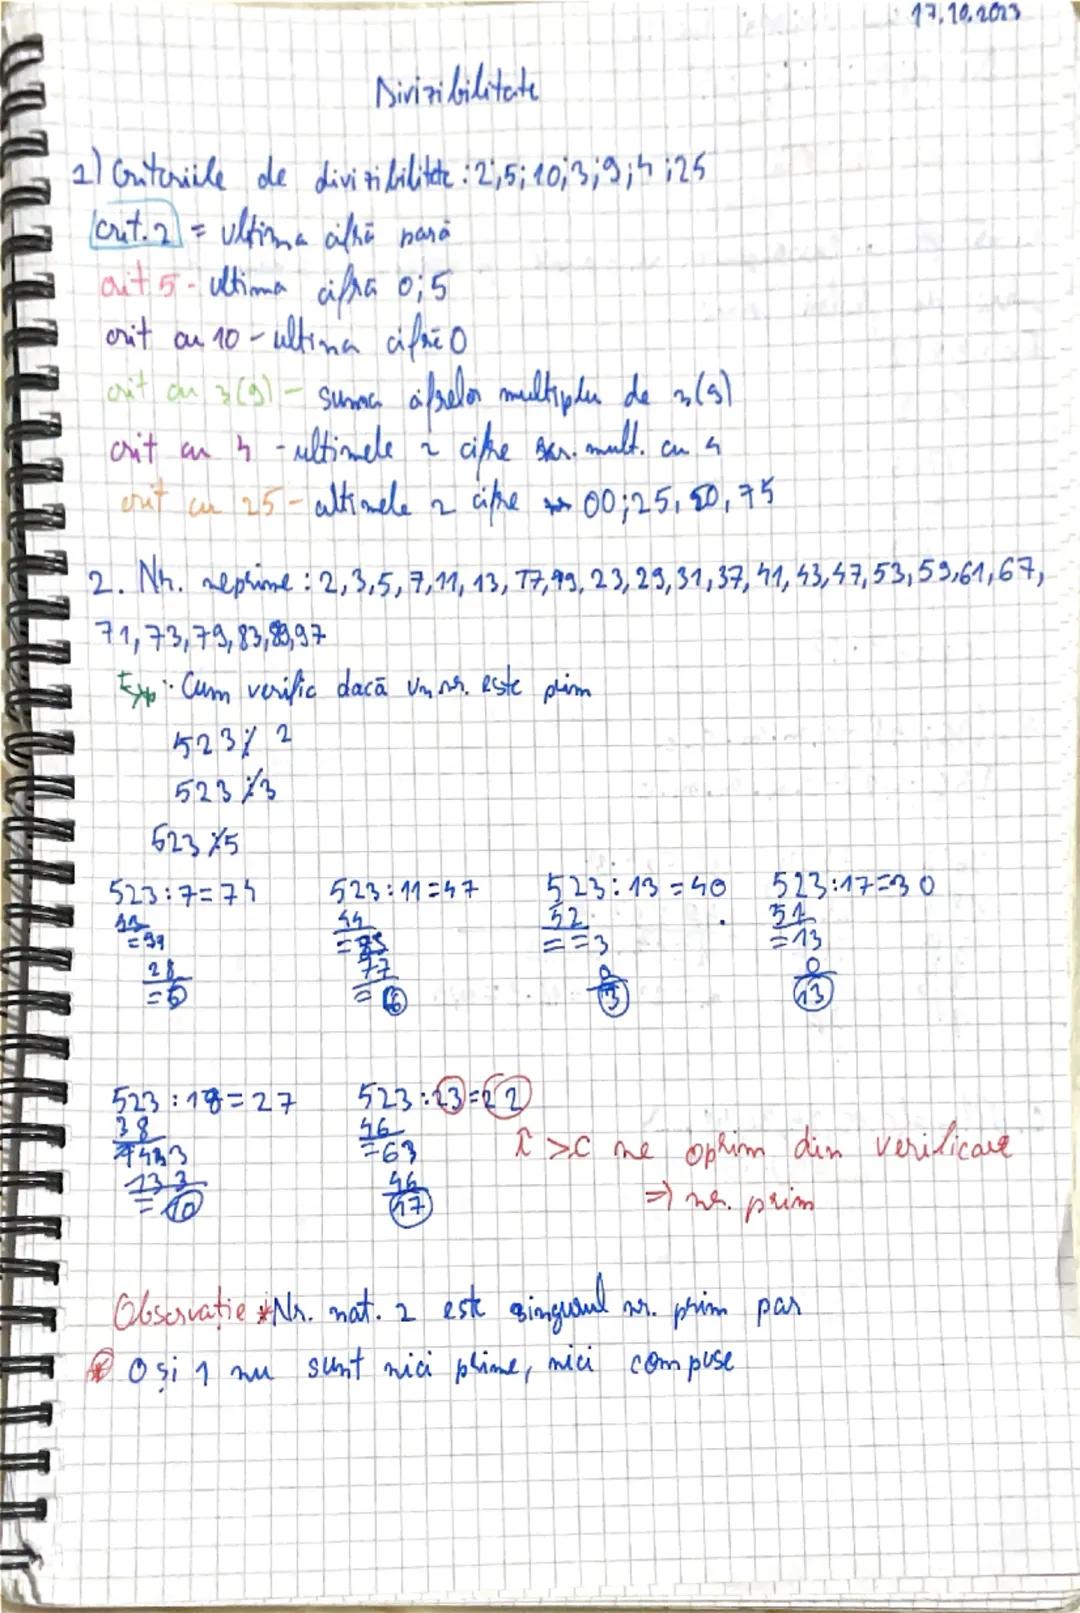 17.10.2023
Divizibilitate
1) Criteriile de divizibilitate : 2;5;10;3;9;4;25
crit. 2 = ultima cifră pară
crit 5 - ultima cifra 0;5
crit cu 10 - ultima cifră 0
crit cu 3(9) - suma cifrelor multiplu de 3(9)
crit cu 4 - ultimele 2 cifre mult. cu 4
crit cu 25 - ultimele 2 cifre 00;25,50,75
2. Nr. neprime : 2,3,5,7,11,13,17,19,23,29,31,37,41,43,47,53,59,61,67,
71,73,79,83,89,97
Exp: Cum verific dacă un nr. este prim
523 ⁒ 2
523 ⁒ 3
523 ⁒ 5
523:7=74 523:11=47 523:13=40 523:17=30
44 52 51
28 77 0 0
3 13
523:19=27 523:23=22
38 46
=63 Î >C ne oprim din verificare
133 46
10 17 => nr. prim
Observație *Nr. nat. 2 este singurul nr. prim par
* 0 și 1 nu sunt nici prime, nici compuse